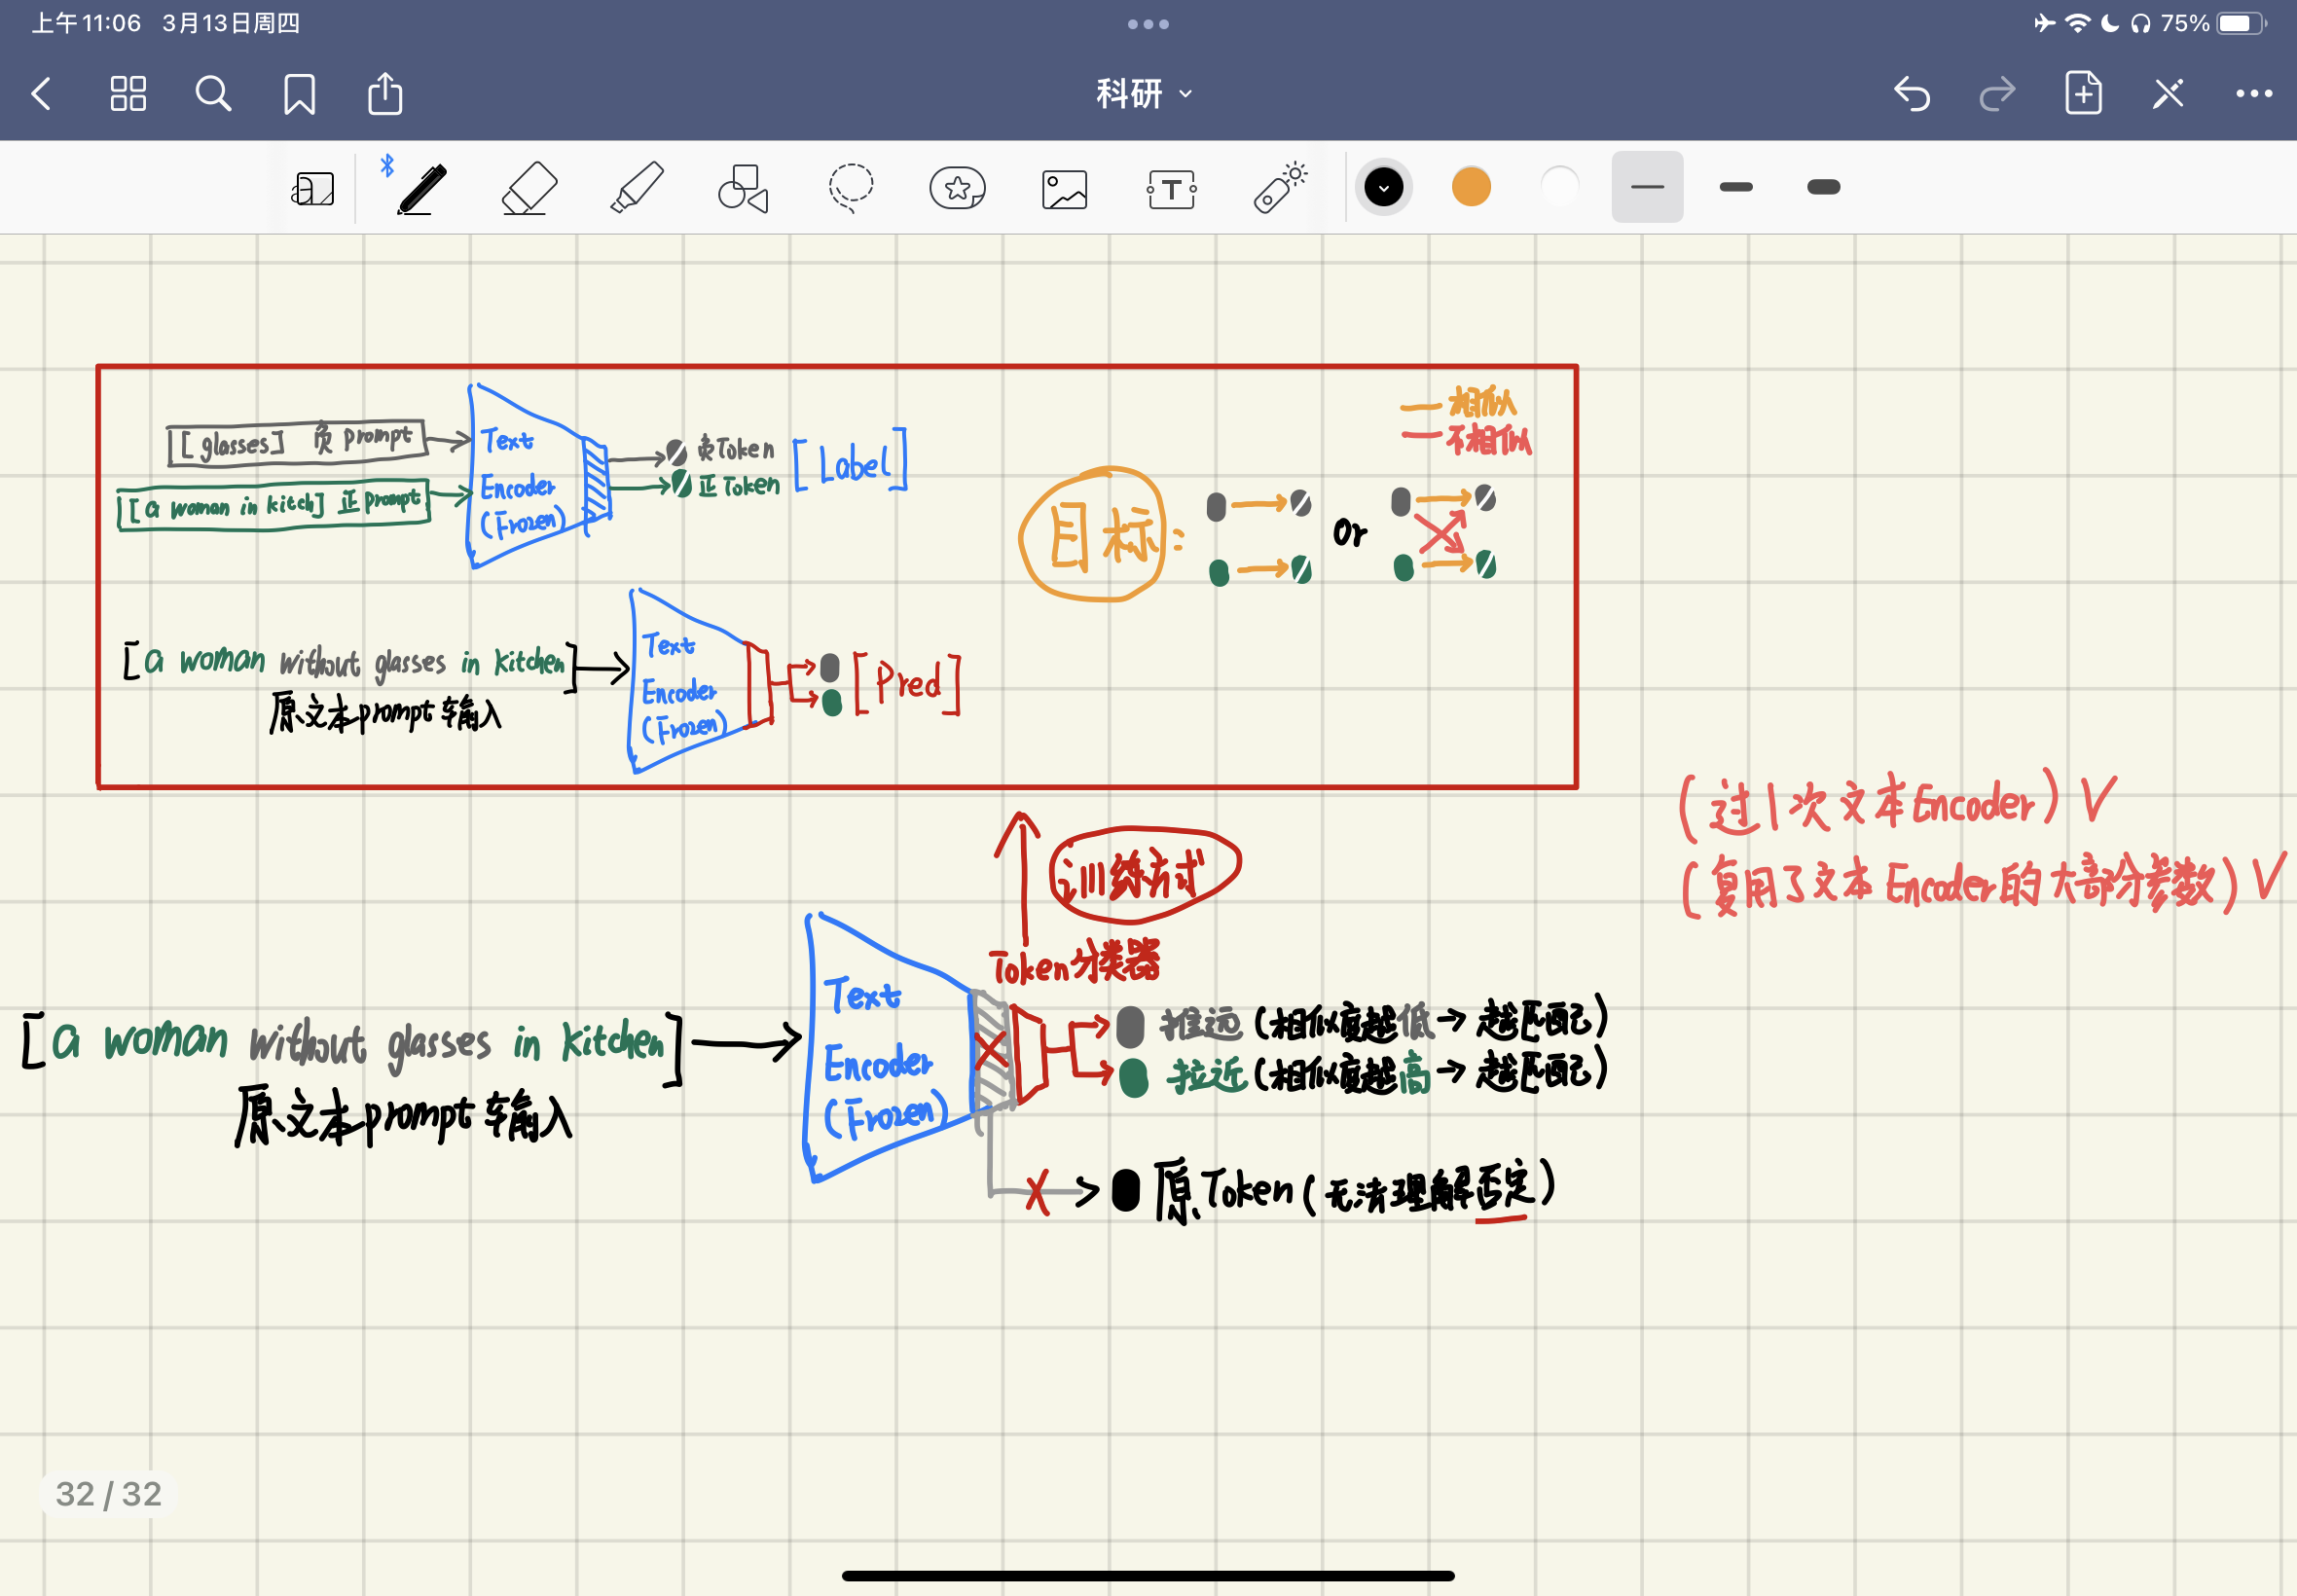 上午11:06 3月13日周四
75%
科研
[[glasses] 负 prompt
[[a woman in kitch] 正 prompt
Text
Encoder
(Frozen)
负Token
正Token
[Label]
相似
不相似
目标:
or
[a woman without glasses in kitchen]
原文本prompt输入
Text
Encoder
(Frozen)
[Pred]
(过1次文本Encoder) V
(复用了文本Encoder的大部分参数) V
训练方式
Token分类器
[a woman without glasses in kitchen]
原文本prompt输入
Text
Encoder
(Frozen)
推远(相似度越低→越匹配)
拉近(相似度越高→越匹配)
原Token(无法理解否定)
32 / 32